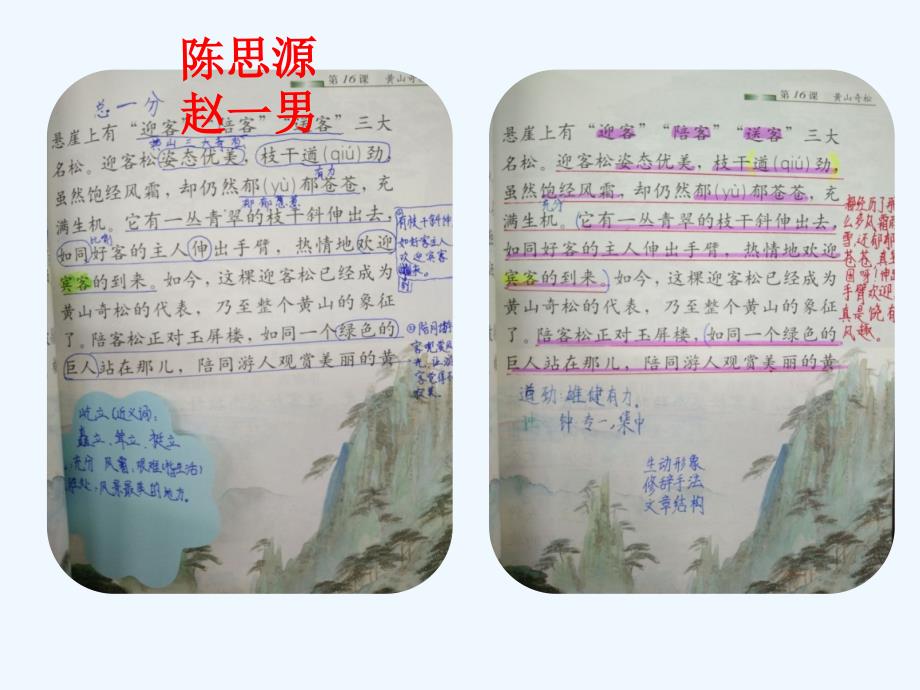 陈思源
赵一男
第16课 黄山奇
总一分
悬崖上有“迎客”“陪客”“送客”三大
名松。迎客松姿态优美，枝干遒(qiú)劲，
有力
虽然饱经风霜，却仍然郁(yù)郁苍苍，充
郁郁葱葱
满生机。它有一丛青翠的枝干斜伸出去，
比喻
如同好客的主人伸出手臂，热情地欢迎
宾客的到来。如今，这棵迎客松已经成为
黄山奇松的代表，乃至整个黄山的象征
了。陪客松正对玉屏楼，如同一个绿色的
巨人站在那儿，陪同游人观赏美丽的黄
有枝干斜伸
如好客主人
欢迎宾客
屹立(近义词):
矗立、耸立、挺立
充分 风霜，艰难(的生活)
风景最美的地方。
第16课 黄山奇松
悬崖上有“迎客”“陪客”“送客”三大
名松。迎客松姿态优美，枝干遒(qiú)劲，
虽然饱经风霜，却仍然郁(yù)郁苍苍，充
充分
满生机。它有一丛青翠的枝干斜伸出去，
如同好客的主人伸出手臂，热情地欢迎
宾客的到来。如今，这棵迎客松已经成为
黄山奇松的代表，乃至整个黄山的象征
了。陪客松正对玉屏楼，如同一个绿色的
巨人站在那儿，陪同游人观赏美丽的黄
经历了那
么多风霜
雪，还郁郁
苍苍，真
手臂欢迎
真是饶有
风趣。
遒劲:雄健有力。
钟 专一,集中
生动形象
修辞手法
文章结构